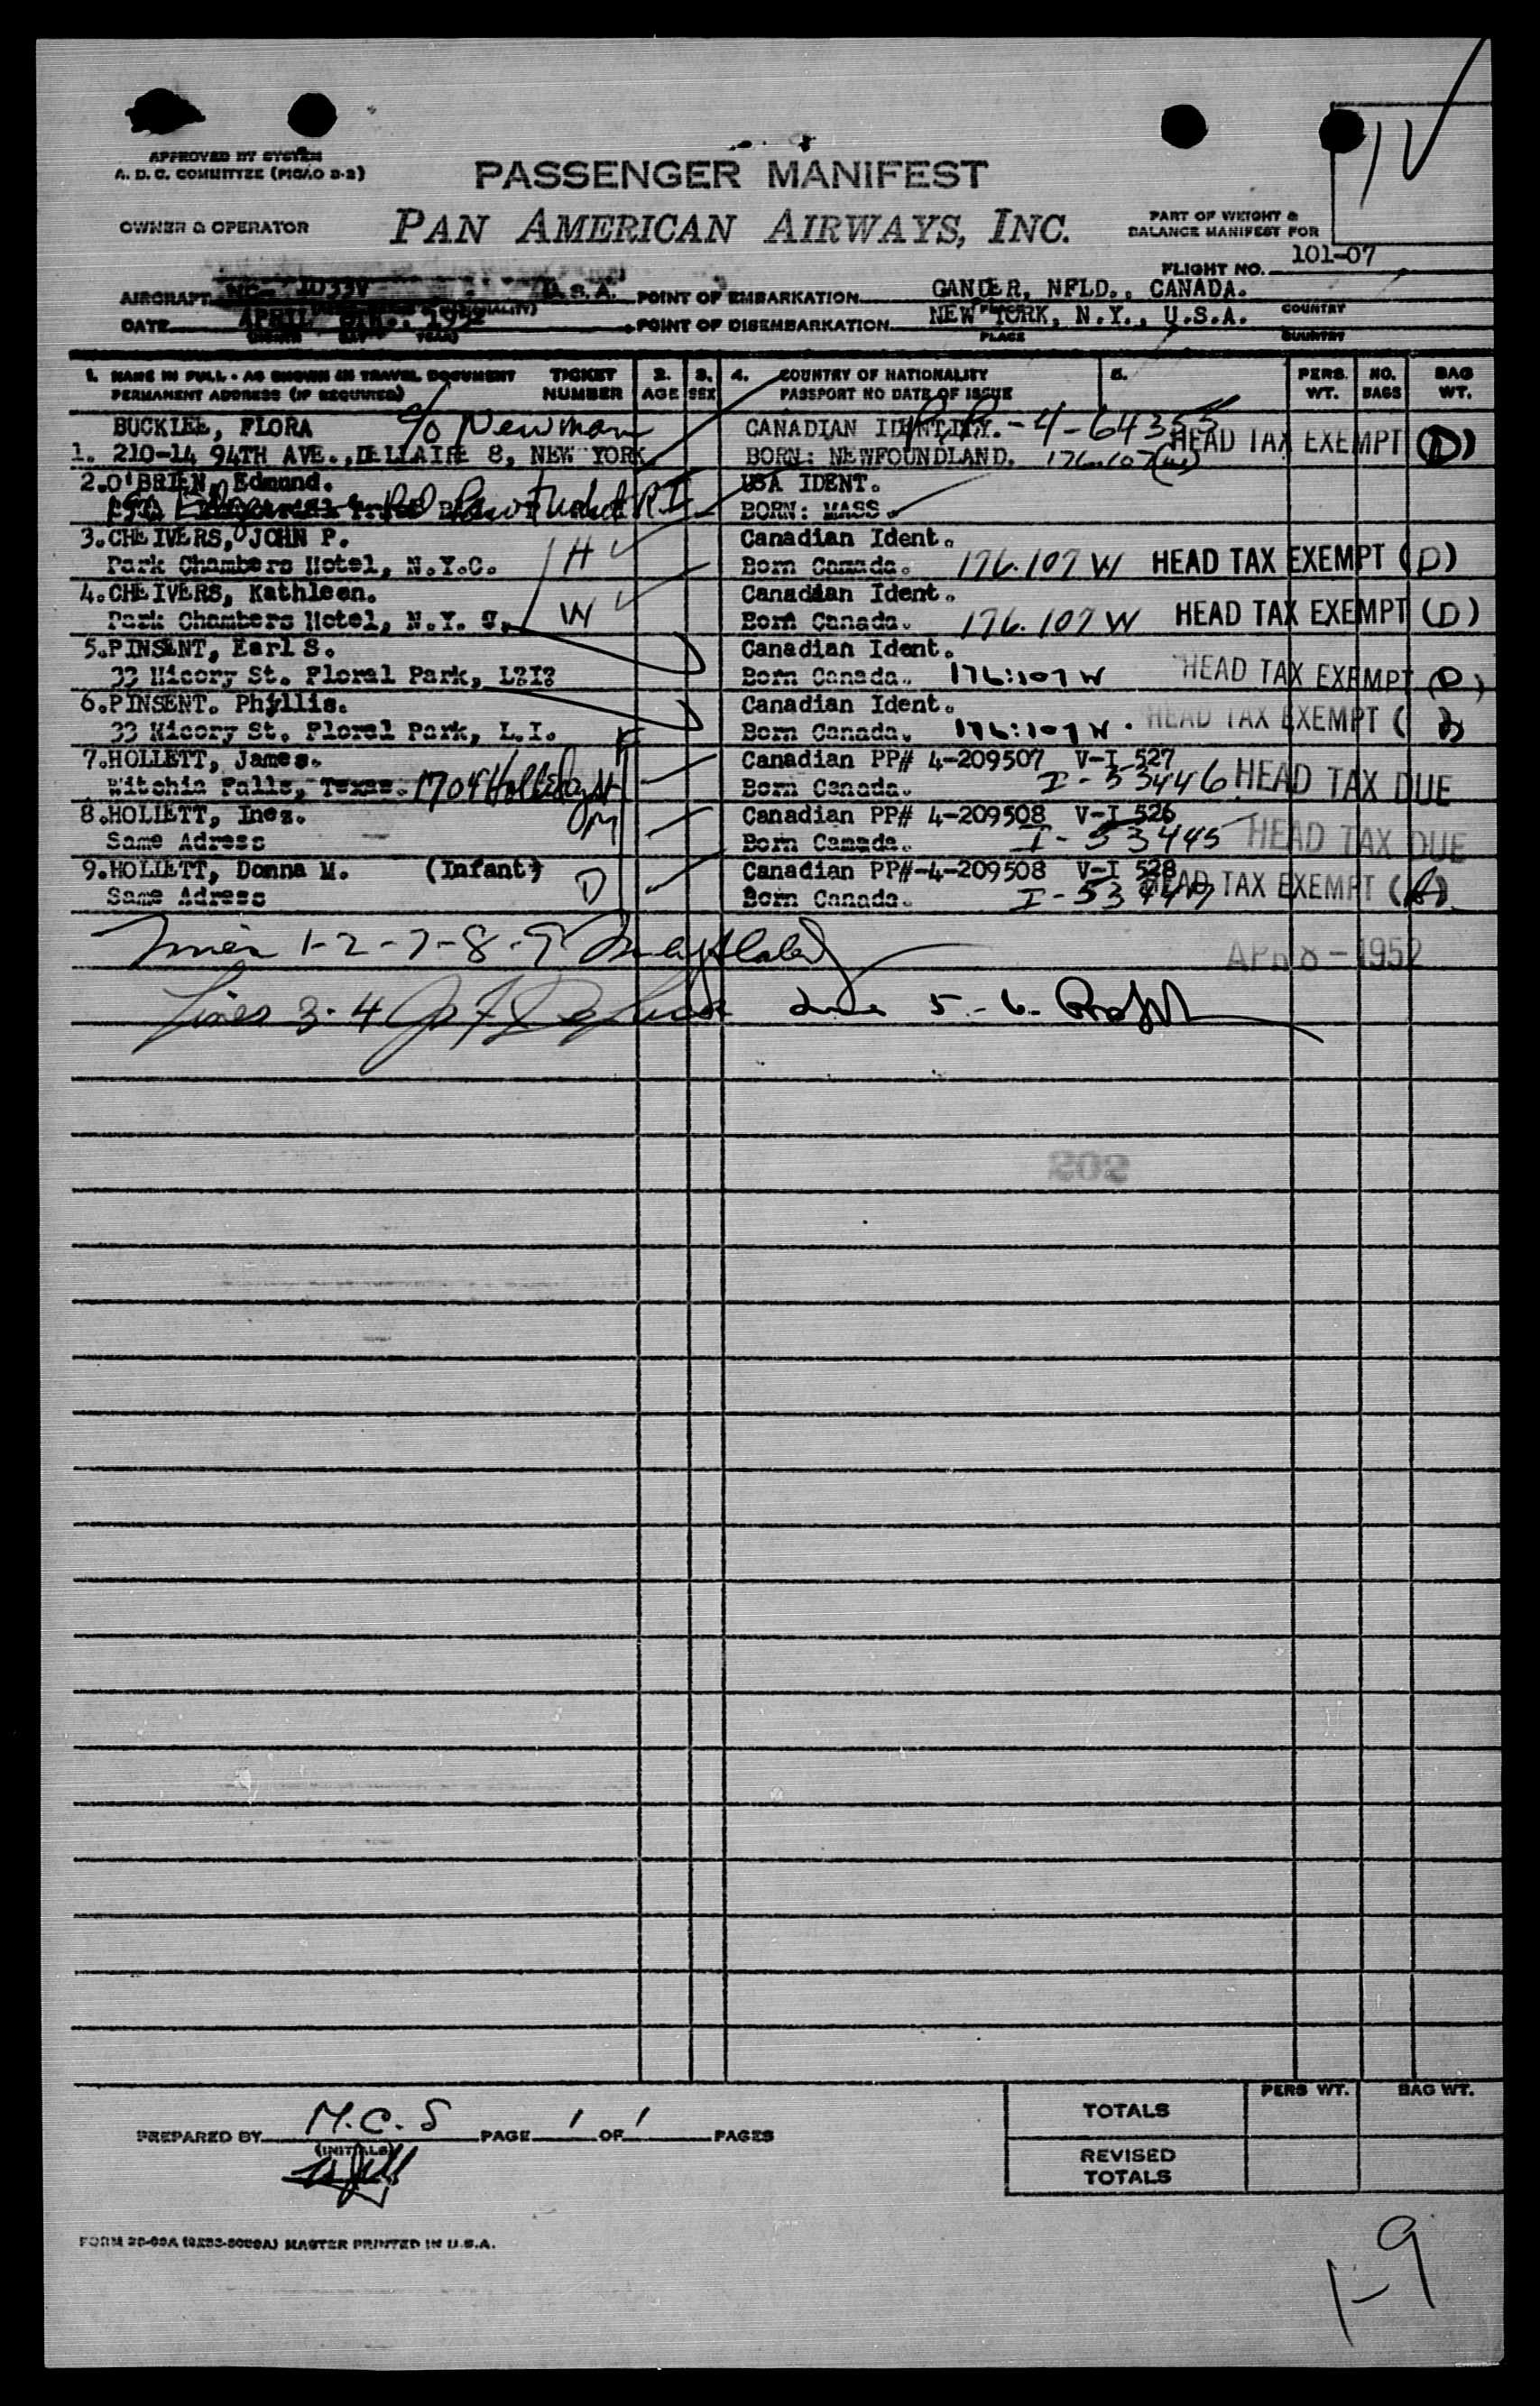 APPROVED BY SYSTEM
A. D. C. COMMITTEE (PICAO 2-2)
PASSENGER MANIFEST
OWNER & OPERATOR
PAN AMERICAN AIRWAYS, INC.
PART OF WEIGHT &
BALANCE MANIFEST FOR
FLIGHT NO. 101-07
AIRCRAFT NC- U.S.A. POINT OF EMBARKATION GANDER, NFLD., CANADA.
COUNTRY
DATE APRIL POINT OF DISEMBARKATION NEW YORK, N.Y., U.S.A.
PLACE COUNTRY
1. NAME IN FULL - AS SHOWN IN TRAVEL DOCUMENT TICKET 2. 3. 4. COUNTRY OF NATIONALITY 5. PERS. NO. BAG
PERMANENT ADDRESS (IF REQUIRED) NUMBER AGE SEX PASSPORT NO DATE OF ISSUE WT. BAGS WT.
BUCKLEE, FLORA c/o Newman CANADIAN IDENTITY. -4-64355
1. 210-14 94TH AVE., BELLAIRE 8, NEW YORK BORN: NEWFOUNDLAND. 176.107(w) HEAD TAX EXEMPT (D)
2. O'BRIEN, Edmund. USA IDENT.
Pawtucket R.I. BORN: MASS.
3. CHEIVERS, JOHN P. H Canadian Ident.
Park Chambers Hotel, N.Y.C. Born Canada. 176.107 W HEAD TAX EXEMPT (D)
4. CHEIVERS, Kathleen. Canadian Ident.
Park Chambers Hotel, N.Y. W Born Canada. 176.107 W HEAD TAX EXEMPT (D)
5. PINSENT, Earl S. Canadian Ident.
33 Hicory St. Floral Park, L?I? Born Canada. 176:107 W HEAD TAX EXEMPT (D)
6. PINSENT. Phyllis. Canadian Ident.
33 Hicory St. Floral Park, L.I. Born Canada. 176:107 W. HEAD TAX EXEMPT (D)
7. HOLLETT, James. F Canadian PP# 4-209507 V-I 527
Witchia Falls, Texas. 1704 Holliday St Born Canada. I-53446 HEAD TAX DUE
8. HOLLETT, Inez. M Canadian PP# 4-209508 V-I 526
Same Adress Born Canada. I-53445 HEAD TAX DUE
9. HOLLETT, Donna M. (Infant) D Canadian PP#-4-209508 V-I 528
Same Adress Born Canada. HEAD TAX EXEMPT (A)
1-2-7-8-9
APR 8 - 1952
Lines 3-4 Line 5-6.
PREPARED BY M.C.S PAGE 1 OF 1 PAGES
(INITIALS)
PERS WT. BAG WT.
TOTALS
REVISED
TOTALS
MASTER PRINTED IN U.S.A.
1-9